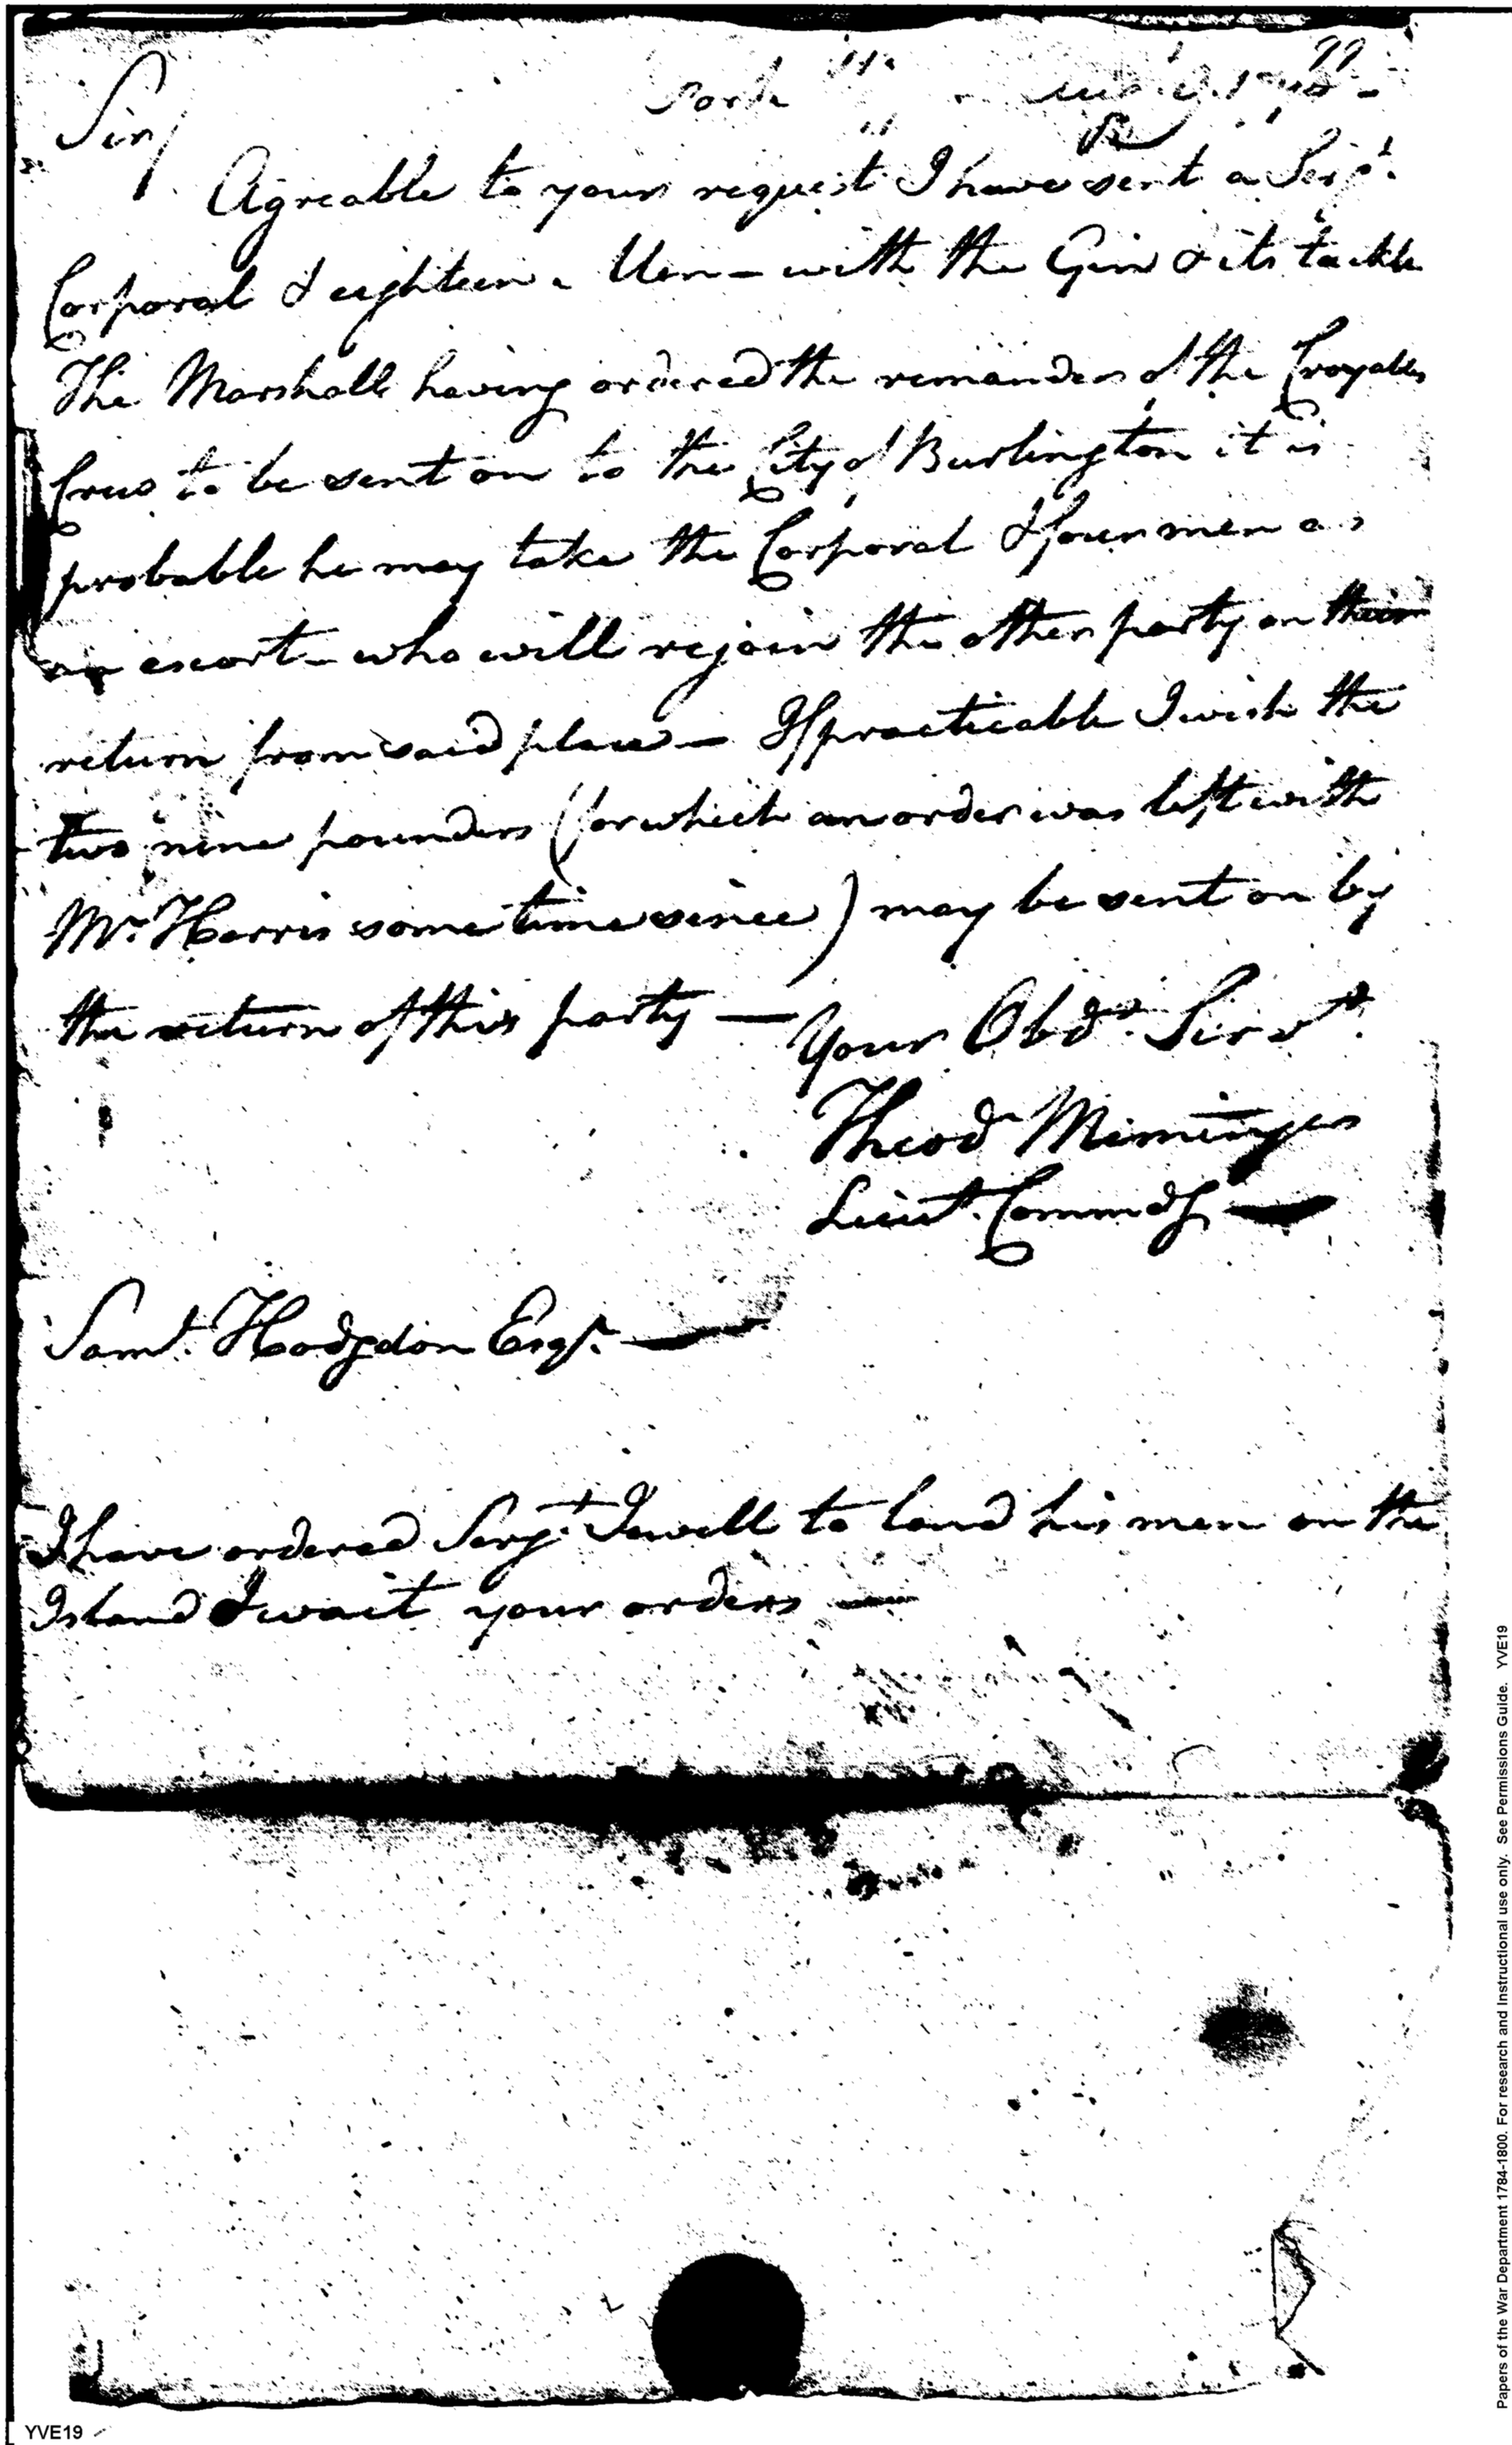 Sir/
Agreable to your request I have sent a Serjt.
Corporal & eighteen Men - with the Gin & its tackle
The Marshall having ordered the remainder of the Croyables
Crew to be sent on to the City of Burlington it is
probable he may take the Corporal & four men as
an escort - who will rejoin the other party on their
return from said place - If practicable I wish the
two nine pounders (for which an order was left with
Mr. Harris some time since) may be sent on by
the return of this party —
Your Obdt. Servt.
Theod Miminger
Lieut. Commdg —
Saml. Hodgdon Esqr. —
I have ordered Serjt. Jewell to land his men on the
Island & wait your orders —
Papers of the War Department 1784-1800. For research and Instructional use only. See Permissions Guide. YVE19
YVE19